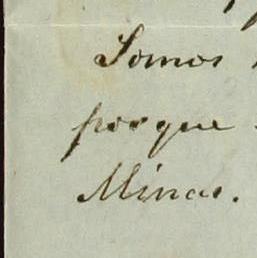 Somos
porque
Minas.